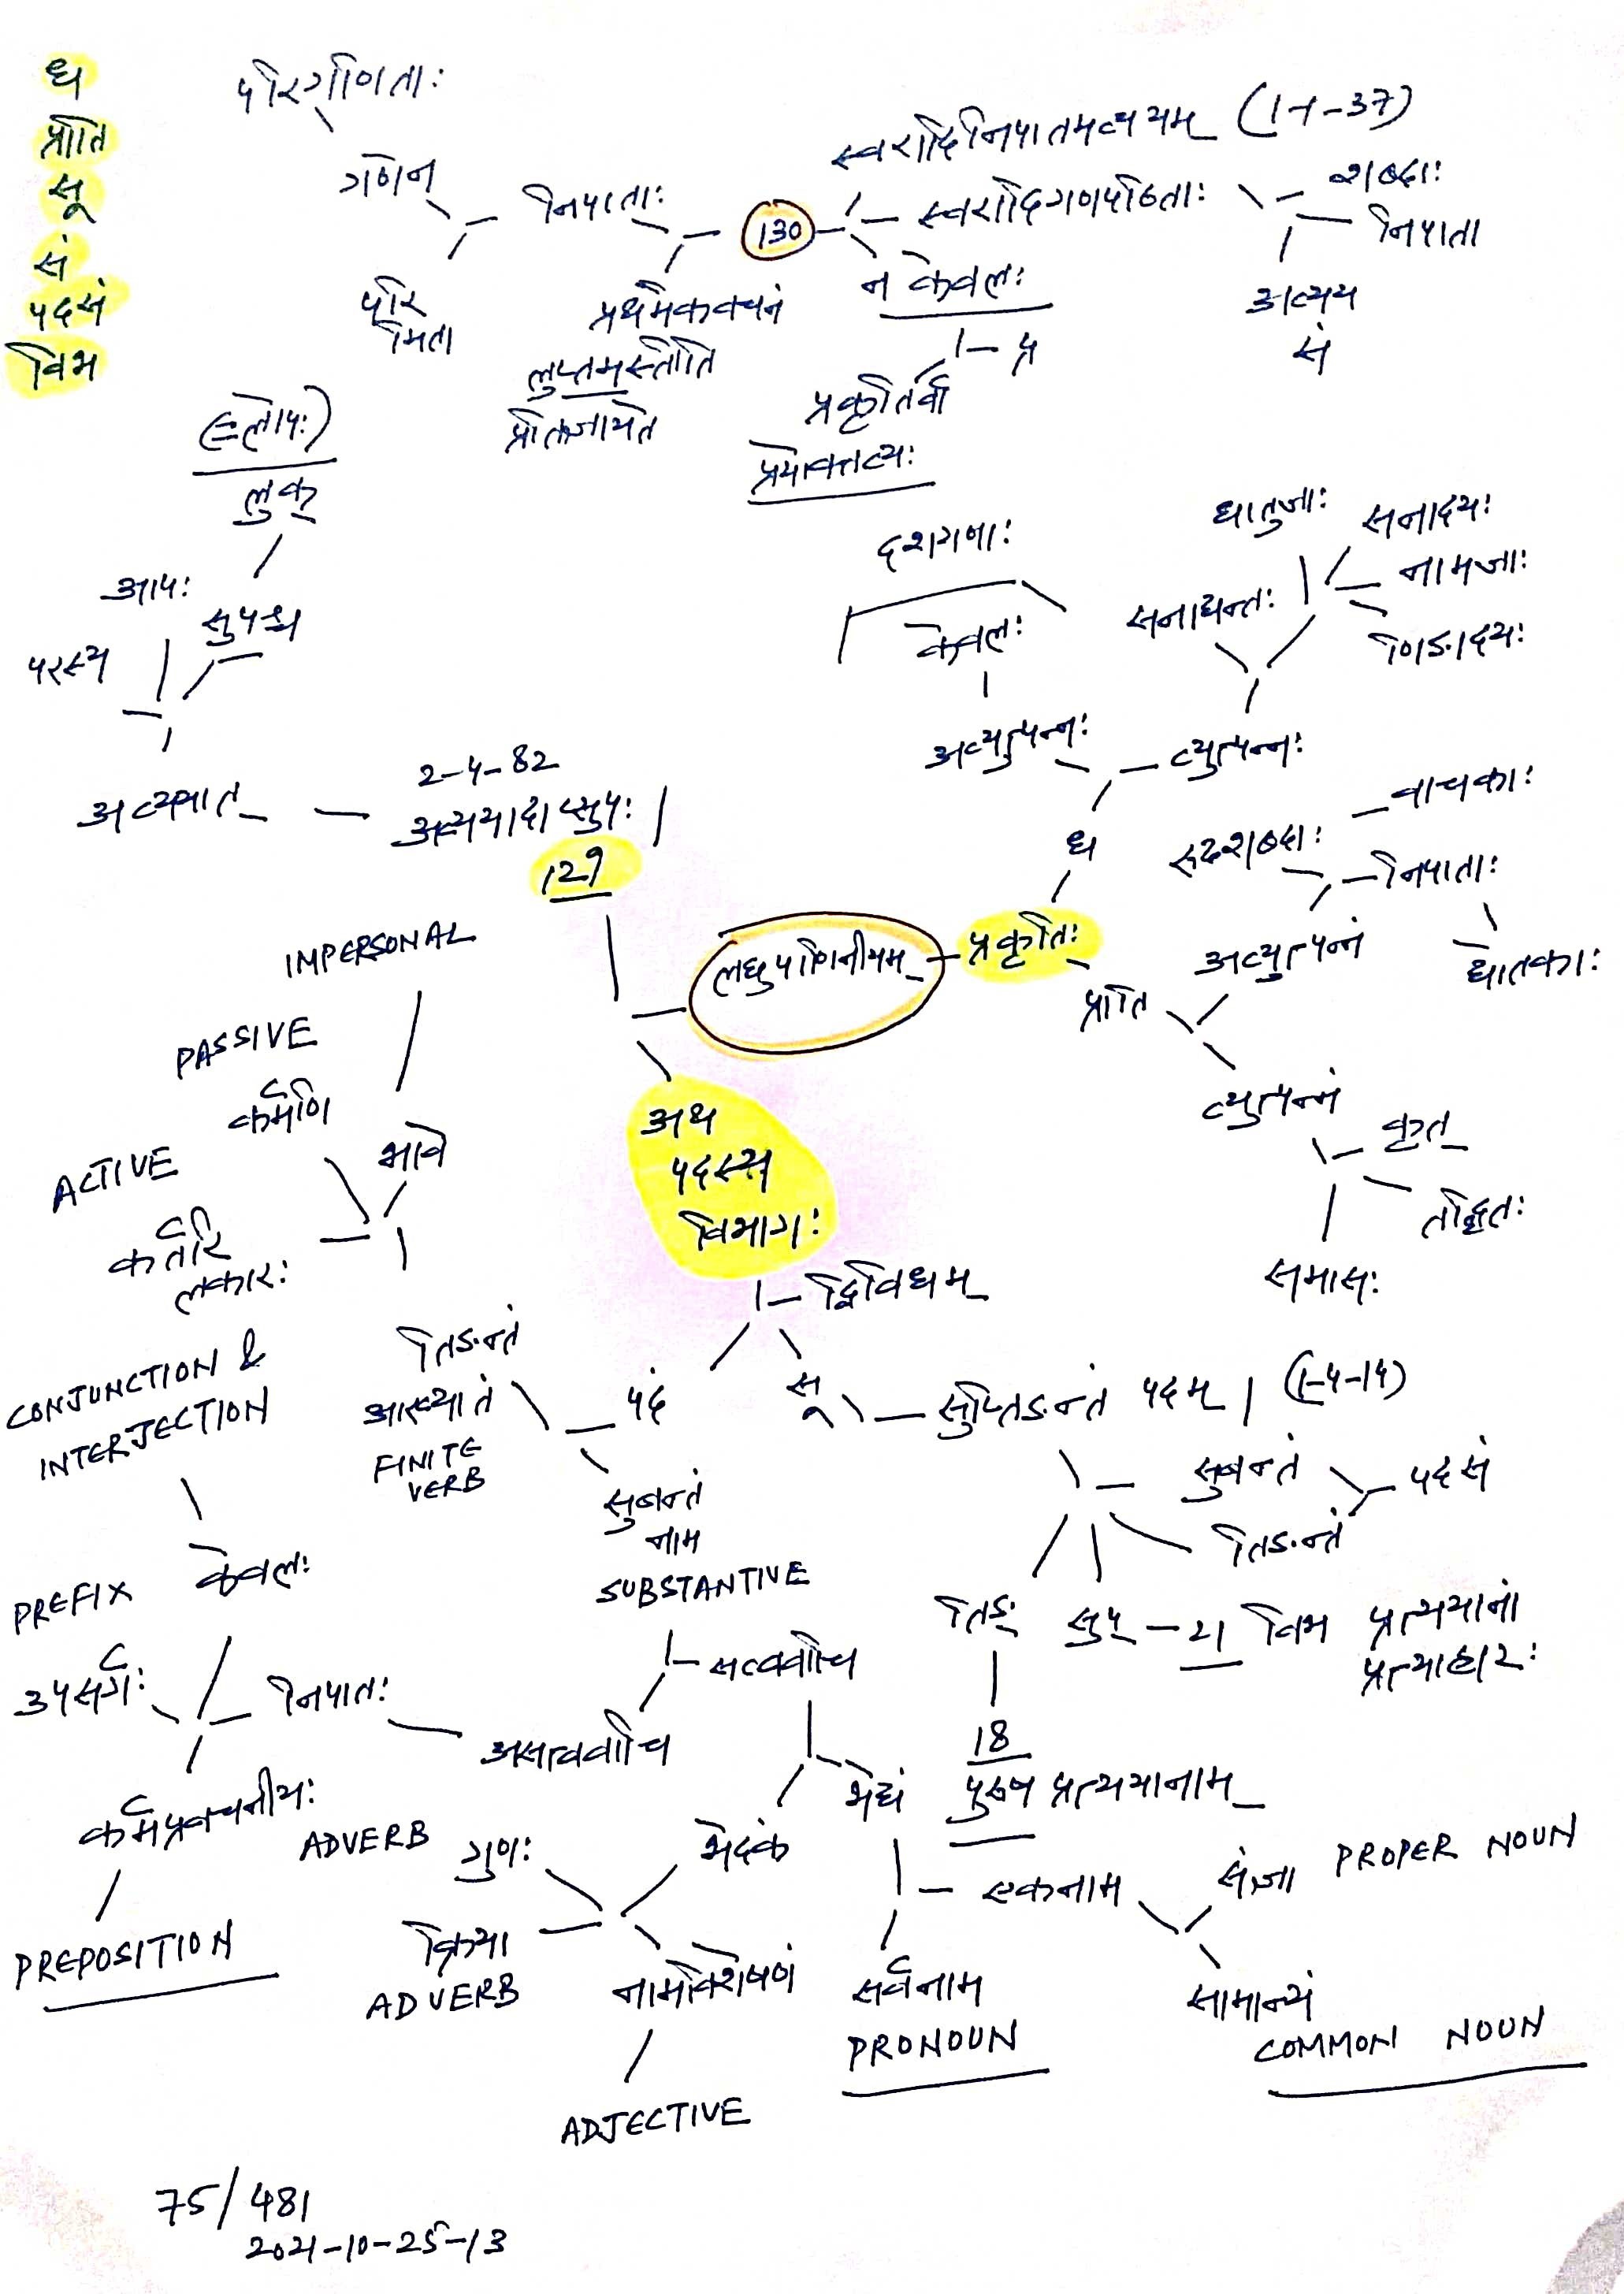 ध
प्राति
सू
सं
पदसं
विभ
परिगणिताः
गणेन
परि
मिता
निपाताः
प्रथमैकवचनं
लुप्तमस्तीति
प्रतिज्ञायते
130
स्वरादिनिपातमव्ययम् (1-1-37)
स्वरादिगणपठिताः
शब्दाः
निपाता
अव्यय
सं
न केवलः
प्र
प्रकृतिर्वा
लुक्
आपः
सुपश्च
परस्य
अव्ययात्
2-4-82
अव्ययादाप्सुपः|
129
लघुपाणिनीयम्
प्रकृतिः
ध
अव्युत्पन्नः
केवलः
दशगणाः
व्युत्पन्नः
सनाद्यन्तः
धातुजाः
सनादयः
नामजाः
णिङादयः
प्राति
अव्युत्पन्नं
रूढशब्दाः
वाचकाः
निपाताः
द्योतकाः
व्युत्पन्नं
कृत्
तद्धितः
समासः
अथ
पदस्य
विभागः
द्विविधम्
पदं
सू
सुप्तिङन्तं पदम् | (1-4-14)
सुबन्तं
तिङन्तं
पदसं
सुप् - 21 विभ प्रत्ययानां
प्रत्याहारः
तिङ्
18
पुरुष प्रत्ययानाम्
IMPERSONAL
भावे
PASSIVE
कर्मणि
ACTIVE
कर्तरि
लकारः
तिङन्तं
आख्यातं
FINITE
VERB
सुबन्तं
नाम
SUBSTANTIVE
CONJUNCTION &
INTERJECTION
केवलः
PREFIX
उपसर्गः
निपातः
कर्मप्रवचनीयः
PREPOSITION
सत्ववाचि
असत्ववाचि
भेदकं
भेद्यं
ADVERB
गुणः
क्रिया
ADVERB
नामविशेषणं
ADJECTIVE
सर्वनाम
PRONOUN
एकनाम
संज्ञा PROPER NOUN
सामान्यं
COMMON NOUN
75/481
2021-10-25-13